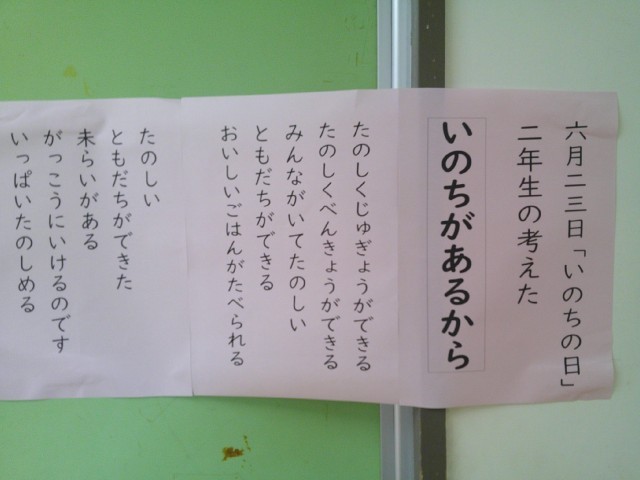 六月二三日「いのちの日」
二年生の考えた
いのちがあるから
たのしくじゅぎょうができる
たのしくべんきょうができる
みんながいてたのしい
ともだちができる
おいしいごはんがたべられる
たのしい
ともだちができた
未らいがある
がっこうにいけるのです
いっぱいたのしめる